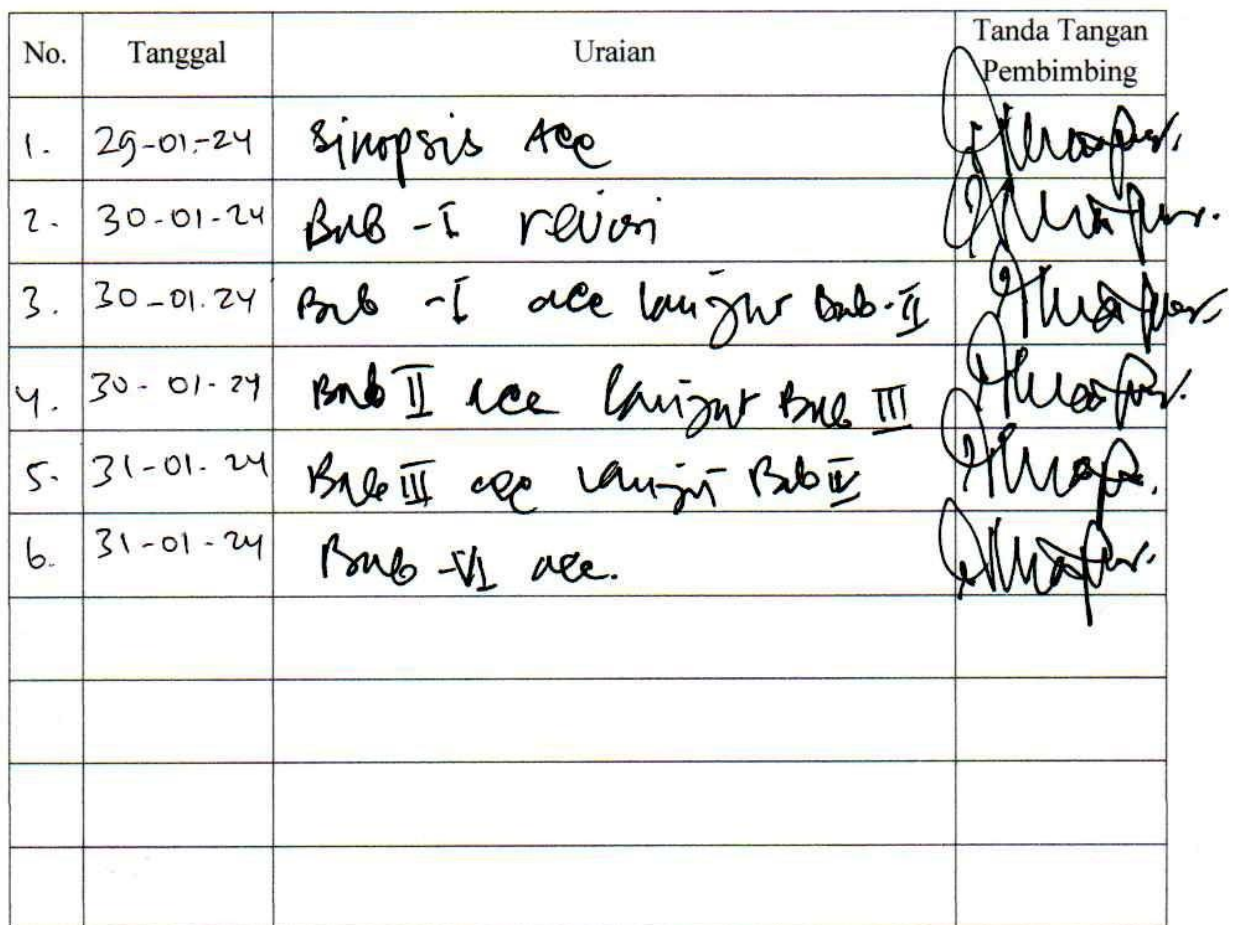 No. Tanggal Uraian Tanda Tangan Pembimbing
1. 29-01-24 Sinopsis Acc
2. 30-01-24 Bab -I revisi
3. 30-01-24 Bab -I acc lanjut Bab-II
4. 30-01-24 Bab II acc lanjut Bab III
5. 31-01-24 Bab III acc lanjut Bab IV
6. 31-01-24 Bab -VI acc.